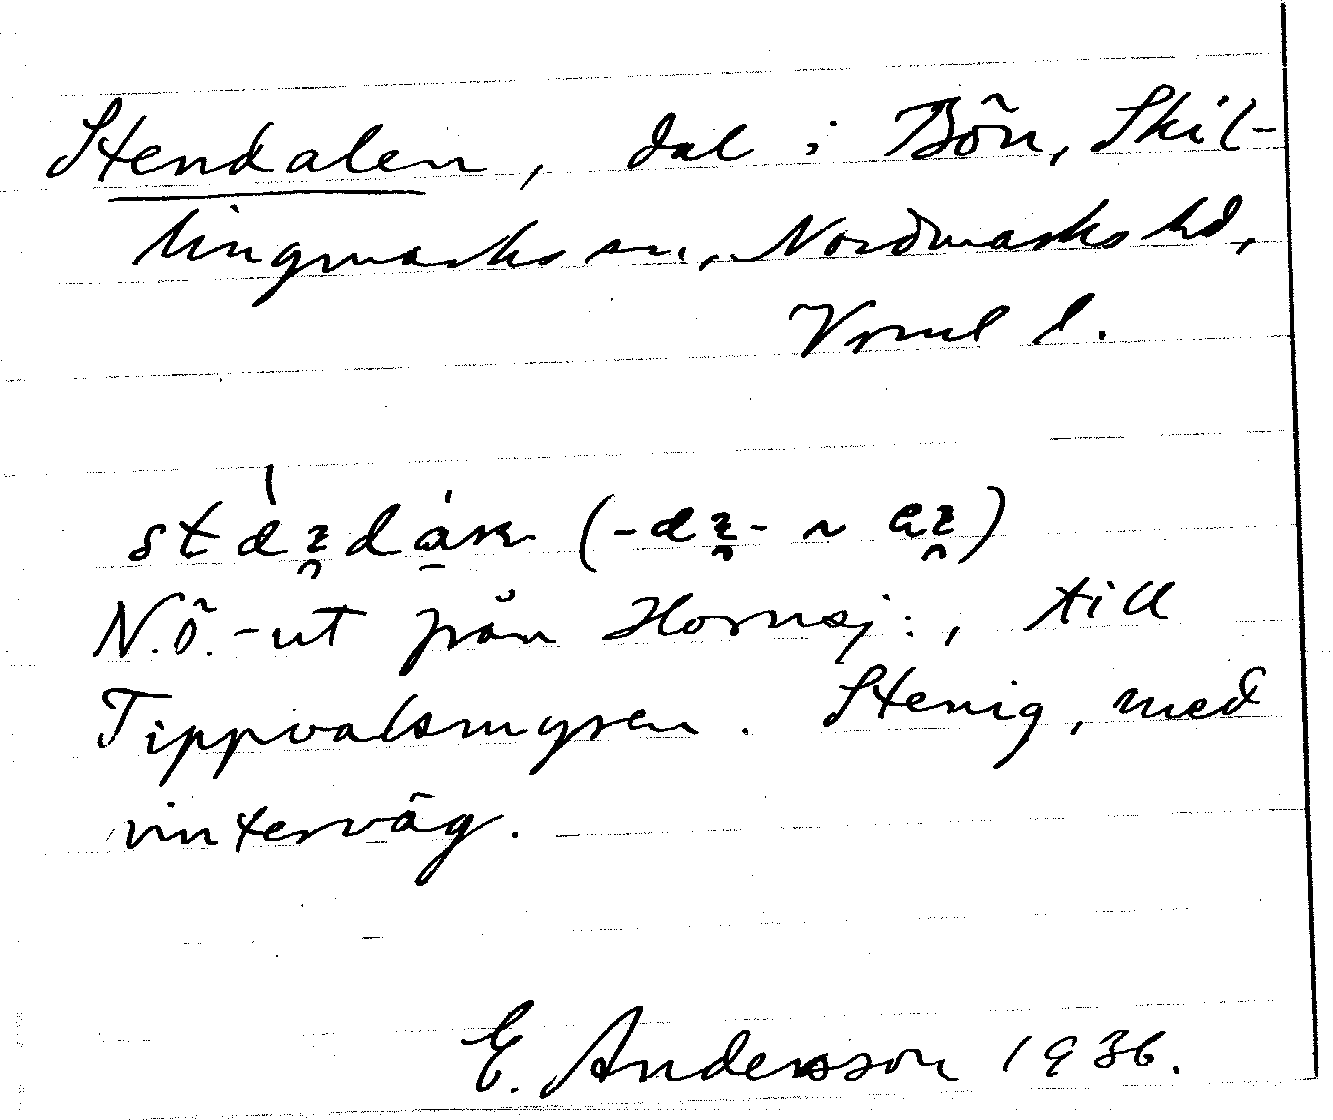 Stendalen, dal i Bön, Skil-
lingmarks sn., Nordmarks hd,
Vrml l.
(-  - ~  )
N.ö.-ut från Hornsj:, till
Tippvalsmyren. Stenig, med
vinterväg.
E. Andersson 1936.